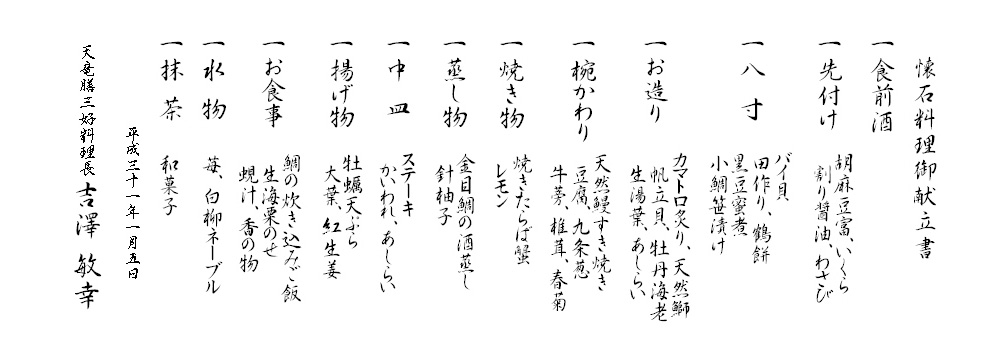 懐石料理御献立書
一 食前酒
一 先付け
胡麻豆富、いくら
割り醤油、わさび
一 八寸
バイ貝
田作り、鶴餅
黒豆蜜煮
小鯛笹漬け
一 お造り
カマトロ炙り、天然鰤
帆立貝、牡丹海老
生湯葉、あしらい
一 椀かわり
天然鰻すき焼き
豆腐、九条葱
牛蒡、椎茸、春菊
一 焼き物
焼きたらば蟹
レモン
一 蒸し物
金目鯛の酒蒸し
針柚子
一 中皿
ステーキ
かいわれ、あしらい
一 揚げ物
牡蠣天ぷら
大葉、紅生姜
一 お食事
鯛の炊き込みご飯
生海栗のせ
蜆汁、香の物
一 水物
苺、白柳ネーブル
一 抹茶
和菓子
平成三十一年一月五日
天竜膳三好料理長 吉澤 敏幸